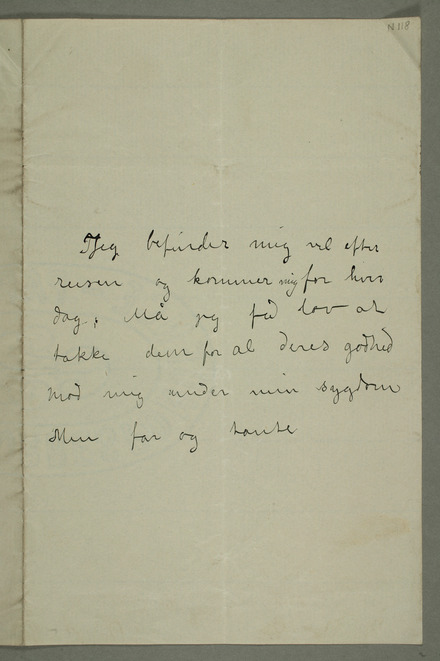 N.118
Jeg befinder mig vel efter
reisen og kommer mig for hver
dag, Må jeg få lov at
takke dem for al deres godhed
mod mig under min sygdom
Men far og tante